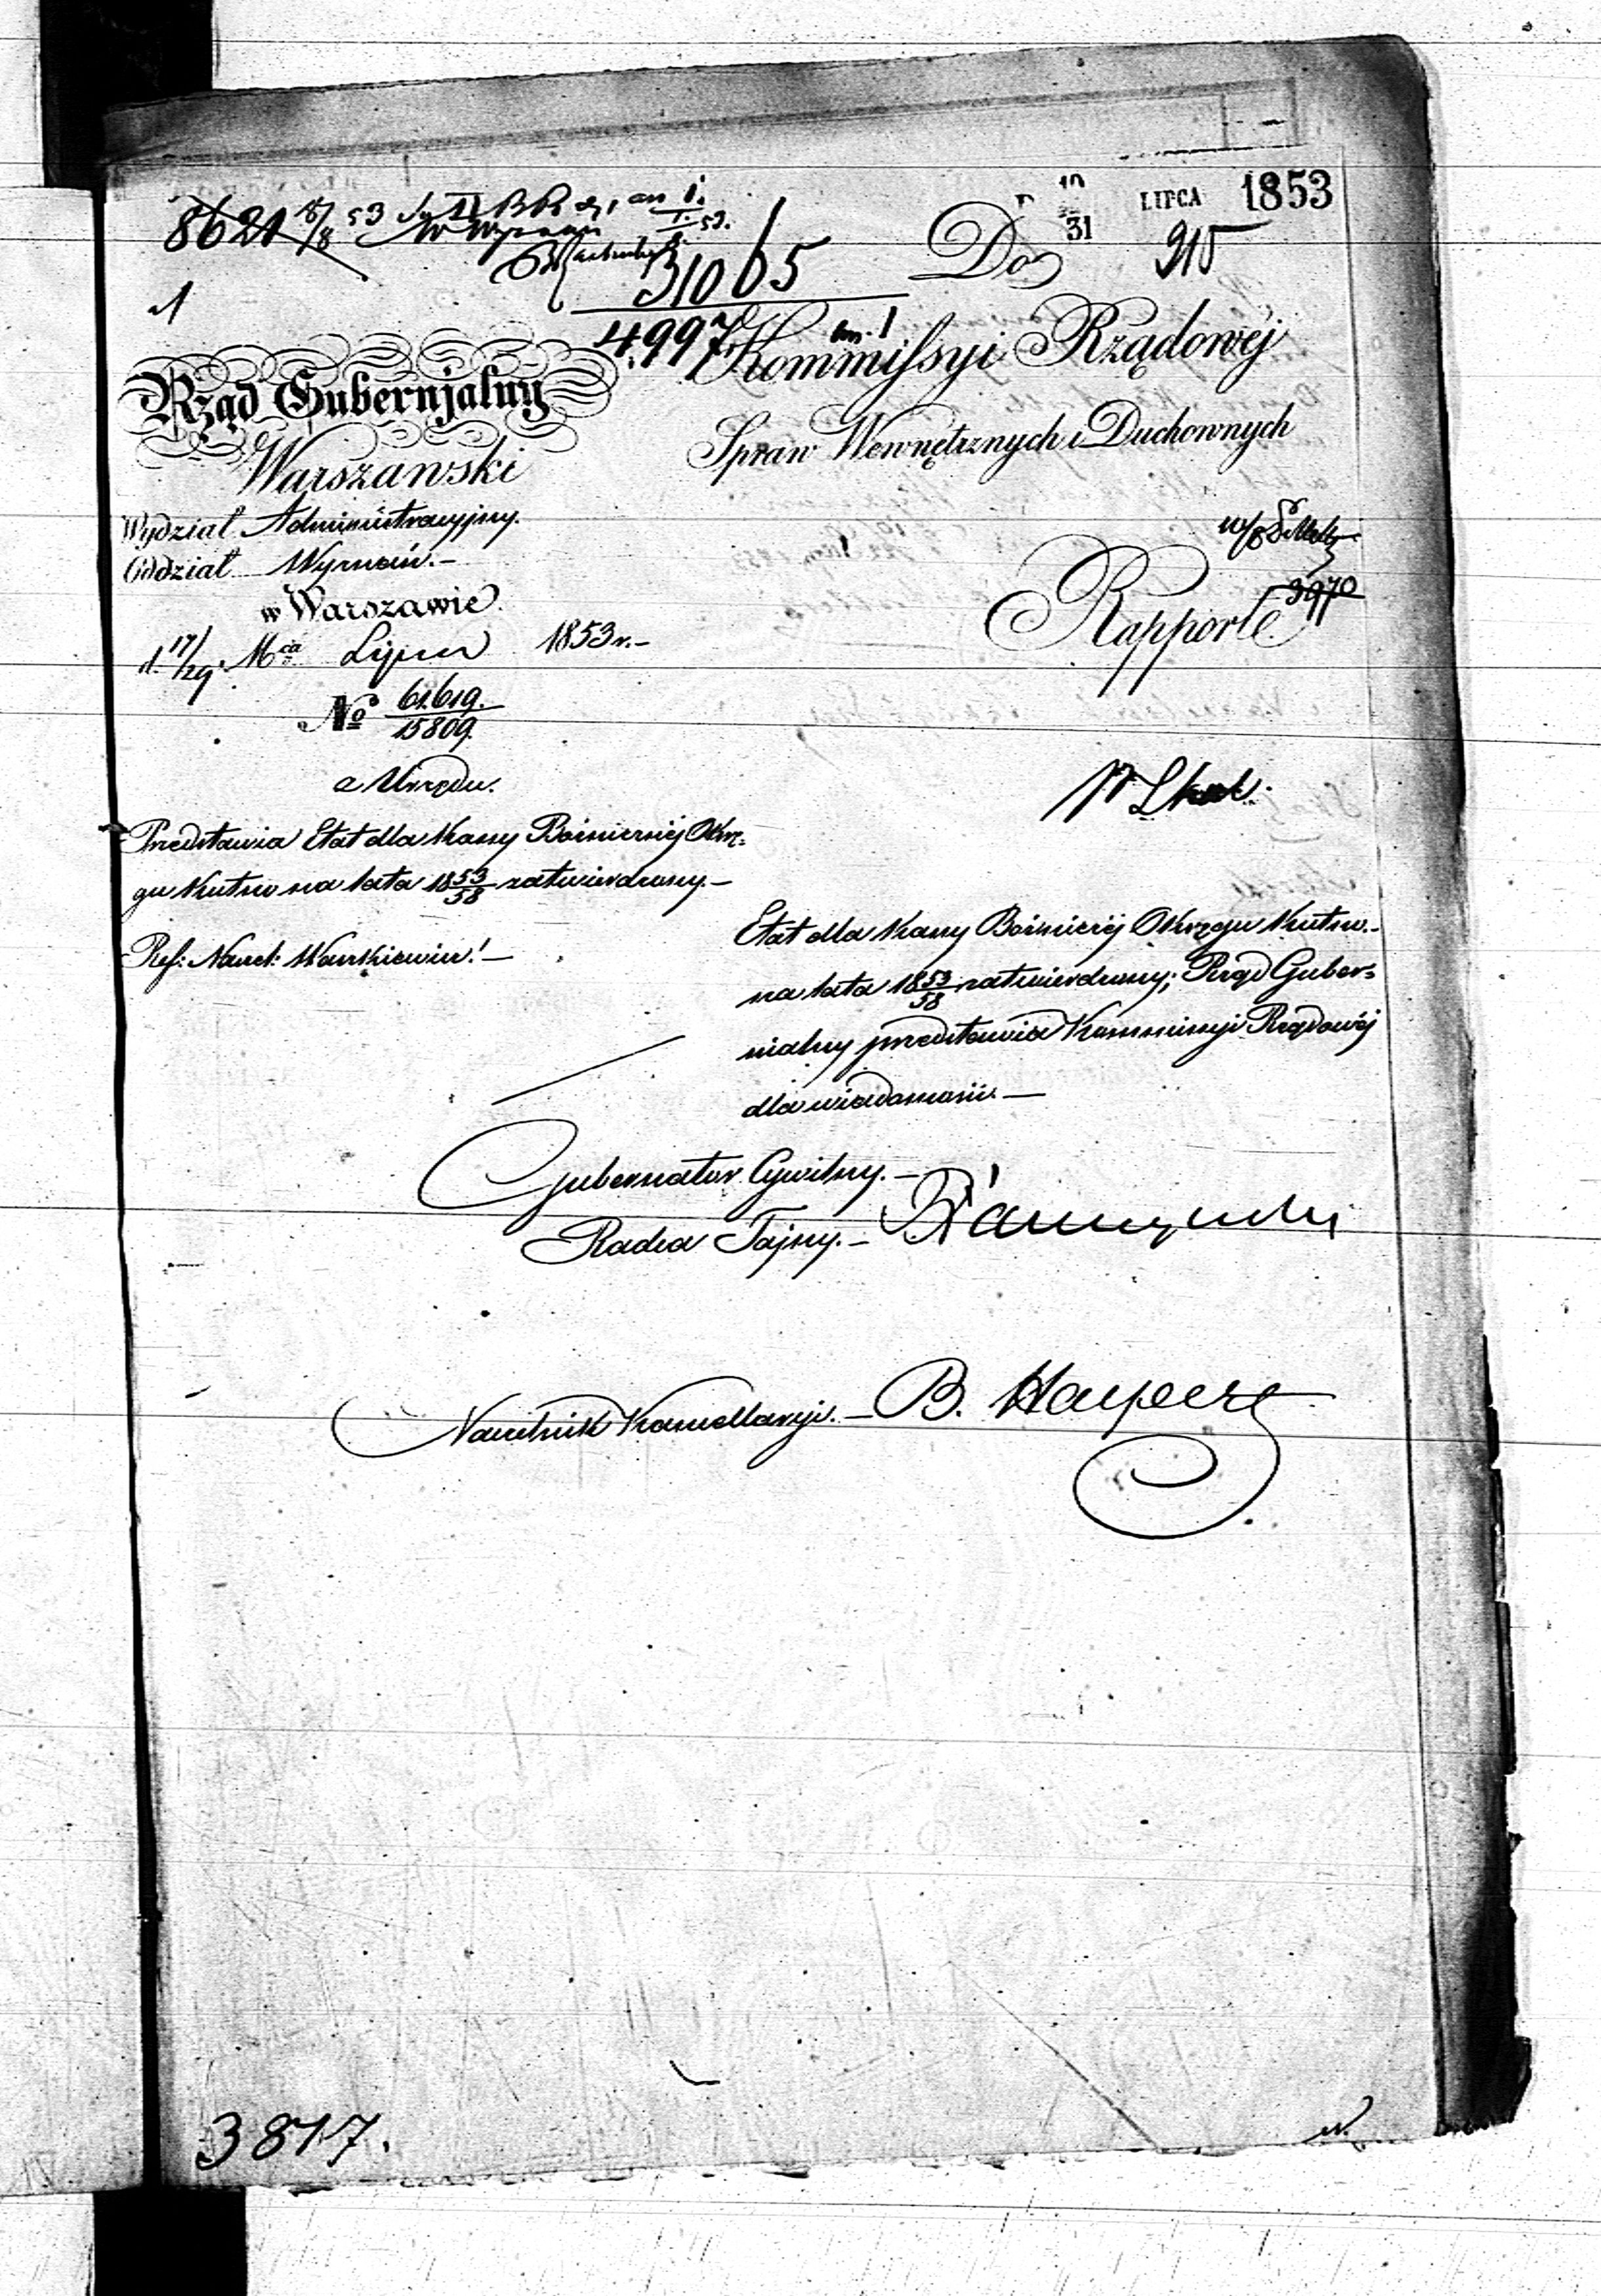 19
31 LIPCA 1853
8621 8/8 53
31065
Do
915
1
4997
Kommissyi Rządowéj
Rząd Gubernjalny
Spraw Wewnętrznych i Duchownych
Warszawski
Wydział Administracyjny.
Oddział Wyznań.—
w Warszawie.
3970
Rapport.
d. 17/29. Mca Lipca 1853 r.—
№ 61.619.
15809.
z Urzędu.
Przedstawia Etat dla Kassy Bóżniczéj Okrę=
gu Kutno na lata 1853/58 zatwierdzony.—
Etat dla Kassy Bóżniczéj Okręgu Kutno.—
Ref: Nacz:
na lata 1853/58 zatwierdzony; Rząd Guber=
nialny przedstawia Kommissyi Rządowéj
dla wiadomości.—
Gubernator Cywilny.—
Radca Tajny.—
Naczelnik Kancellaryi.— B. Halpert
3817.